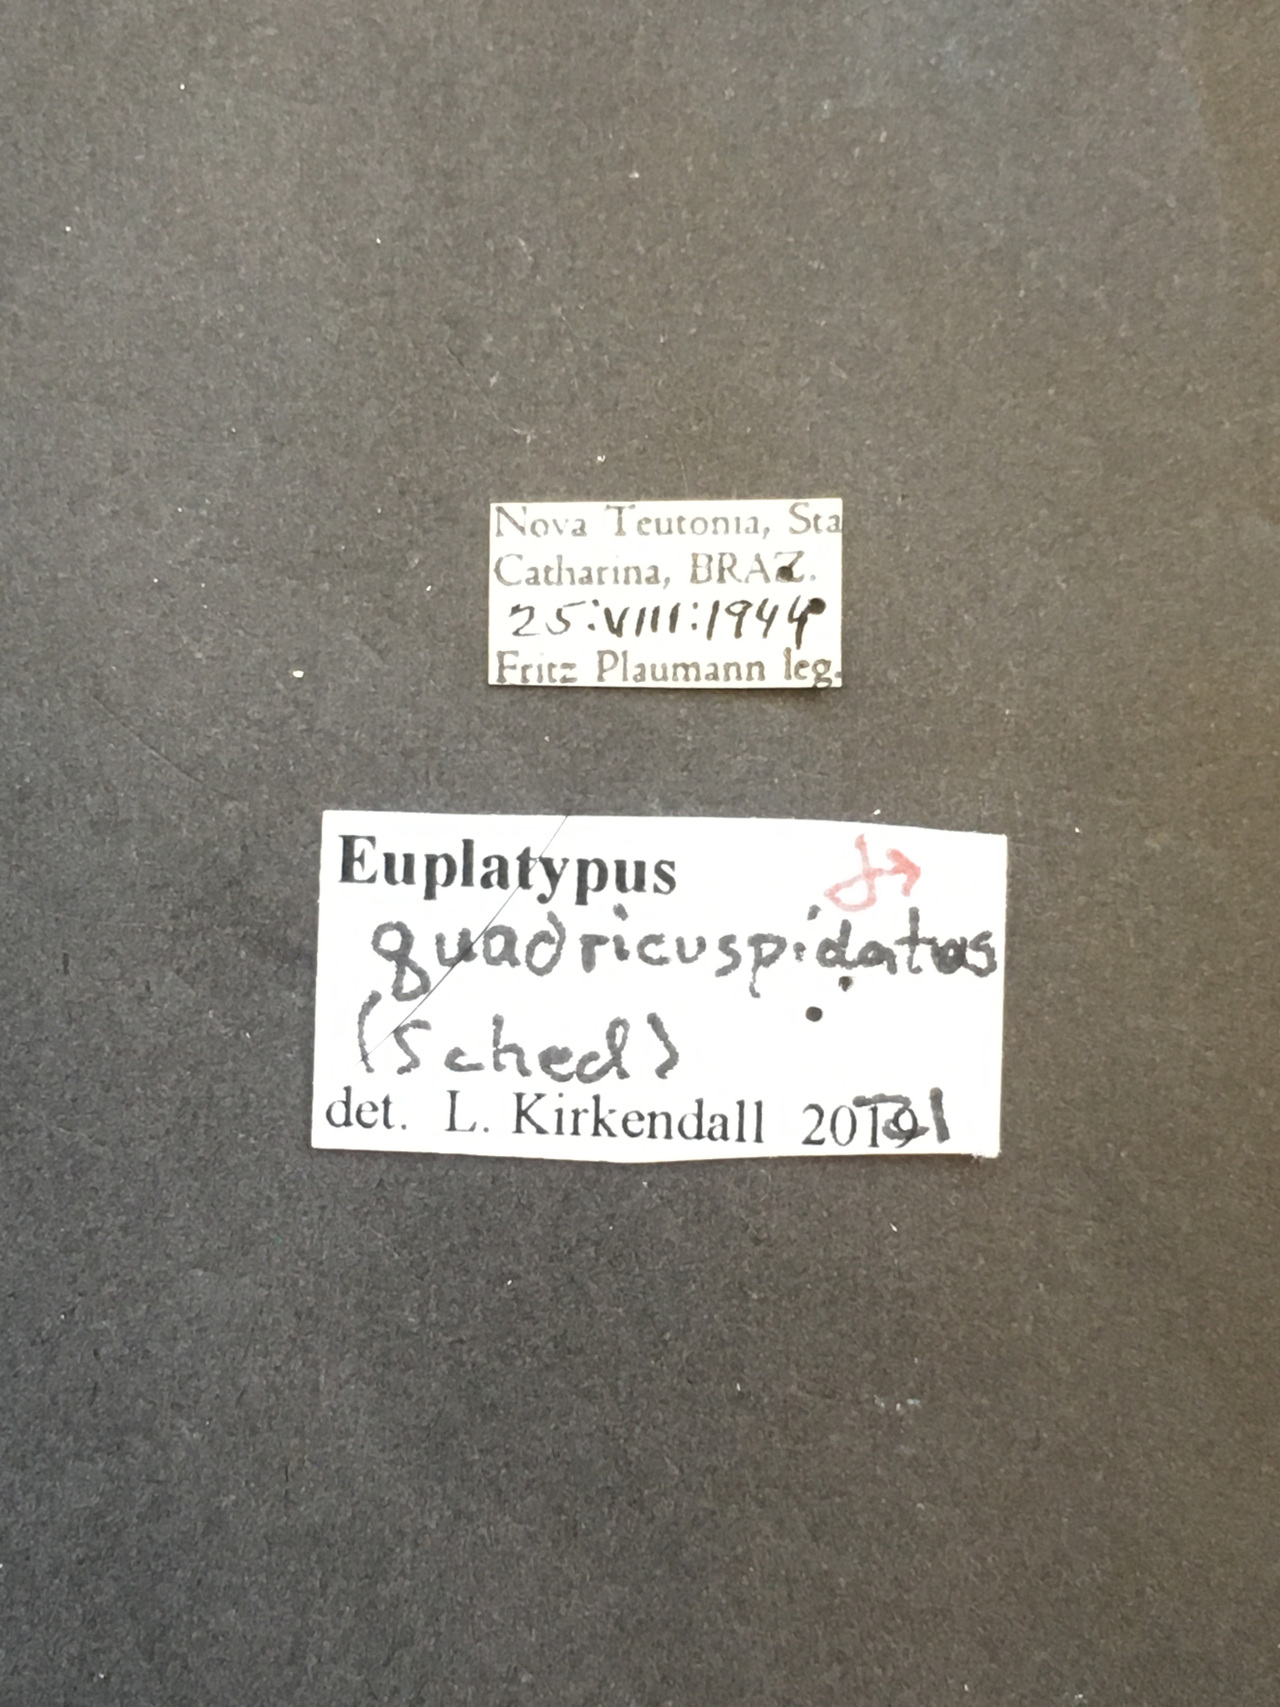 Nova Teutonia, Sta
Catharina, BRAZ.
25:VIII:1944
Fritz Plaumann leg.
Euplatypus ♂
quadricuspidatus
(Sched)
det. L. Kirkendall 2021